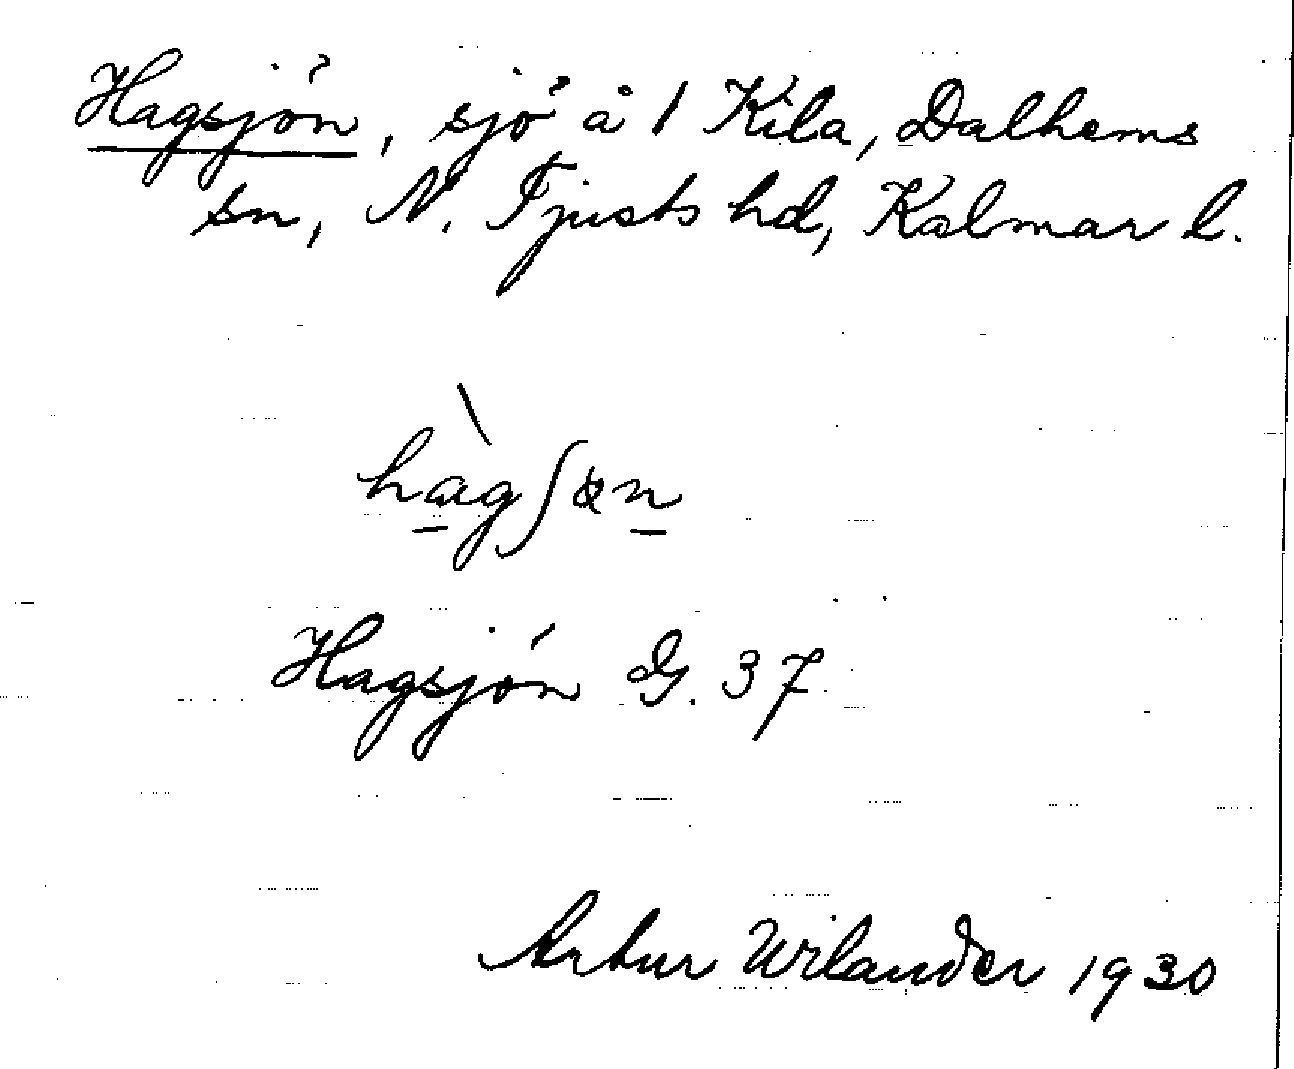 Hagsjön, sjö å 1 Kila, Dalhems
sn, N. Tjusts hd, Kalmar l.
hàgʃən
Hagsjön G. 37
Artur Wilander 1930